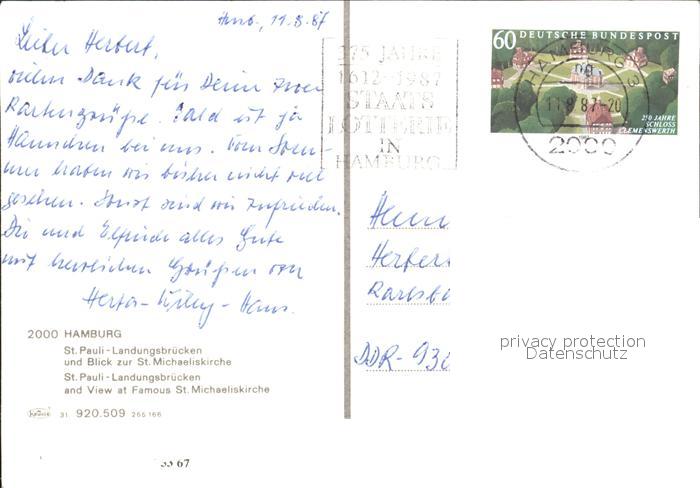 Hmb., 11.8.87
Lieber Herbert,
vielen Dank für Deine zwei
Kartengrüße. Bald ist ja
Hannchen bei uns. Vom Som-
mer haben wir bisher nicht viel
gesehen. Sonst sind wir zufrieden.
Dir und Elfriede alles Gute
mit herzlichen Grüßen von
Herta - Hans.
2000 HAMBURG
St. Pauli - Landungsbrücken
und Blick zur St. Michaeliskirche
St. Pauli - Landungsbrücken
and View at Famous St. Michaeliskirche
krüger 31 920.509 265 166
55 67
375 JAHRE
1612-1987
STAATS
LOTTERIE
IN
HAMBURG
60 DEUTSCHE BUNDESPOST
250 JAHRE
SCHLOSS
CLEMENSWERTH
HAMBURG 3
ng
11.8.87-20
2000
Herrn
Herber
Karlsb
DDR - 93
privacy protection
Datenschutz